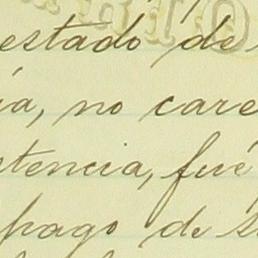 estado de
ia, no care
tencia, fué
pago de s